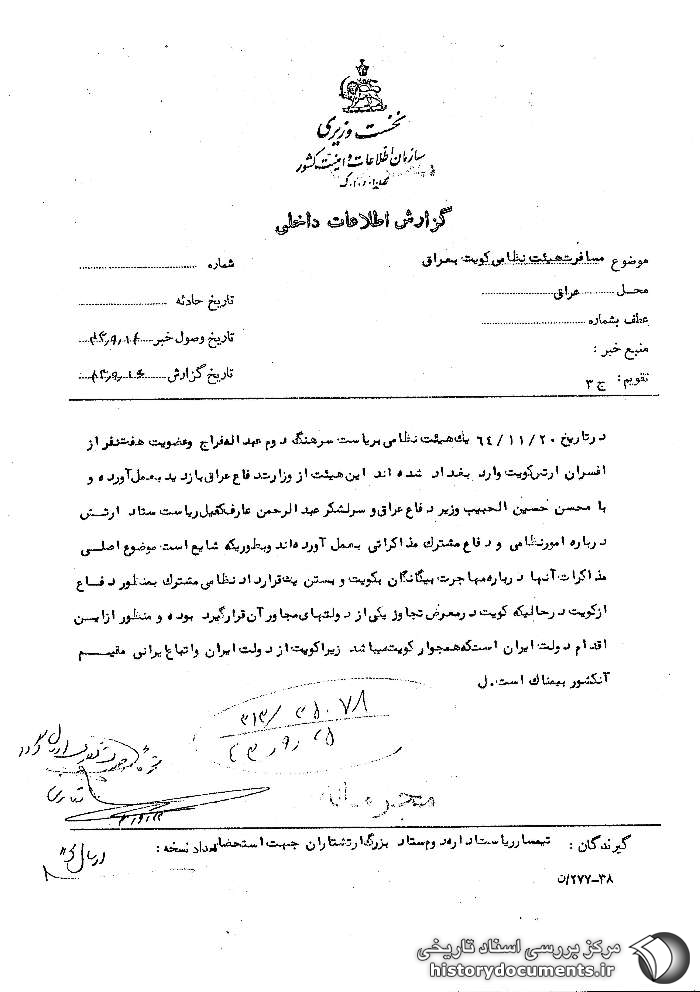 نخست وزیری
سازمان اطلاعات و امنیت کشور
گزارش اطلاعات داخلی
موضوع مسافرت هیئت نظامی کویت بعراق
شماره
محل عراق
تاریخ حادثه
عطف بشماره
تاریخ وصول خبر
منبع خبر :
تاریخ گزارش
تقویم: ج ۳
در تاریخ ۶۴/۱۱/۲۰ یک هیئت نظامی بریاست سرهنگ دوم عبداله فراج وعضویت هفت نفر از
افسران ارتش کویت وارد بغداد شده اند این هیئت از وزارت دفاع عراق بازدید بعمل آورده و
با محسن حسین الحبیب وزیر دفاع عراق و سرلشکر عبدالرحمن عارف کفیل ریاست ستاد ارتش
درباره امور نظامی و دفاع مشترک مذاکراتی بعمل آورده اند وبطوریکه شایع است موضوع اصلی
مذاکرات آنها درباره مهاجرت بیگانگان بکویت و بستن یک قرارداد نظامی مشترک بمنظور دفاع
از کویت در حالیکه کویت در معرض تجاوز یکی از دولتهای مجاور آن قرار گیرد بوده و منظور از این
اقدام دولت ایران است که همجوار کویت میباشد زیرا کویت از دولت ایران واتباع ایرانی مقیم
آنکشور بیمناک است. ل
۳۱۳/۳۵۰۷۸
محرمانه
گیرندگان : تیمسار ریاست اداره دوم ستاد بزرگ ارتشتاران جهت استحضار تعداد نسخه :
۳۸-۲۷۷/ن
مرکز بررسی اسناد تاریخی
historydocuments.ir